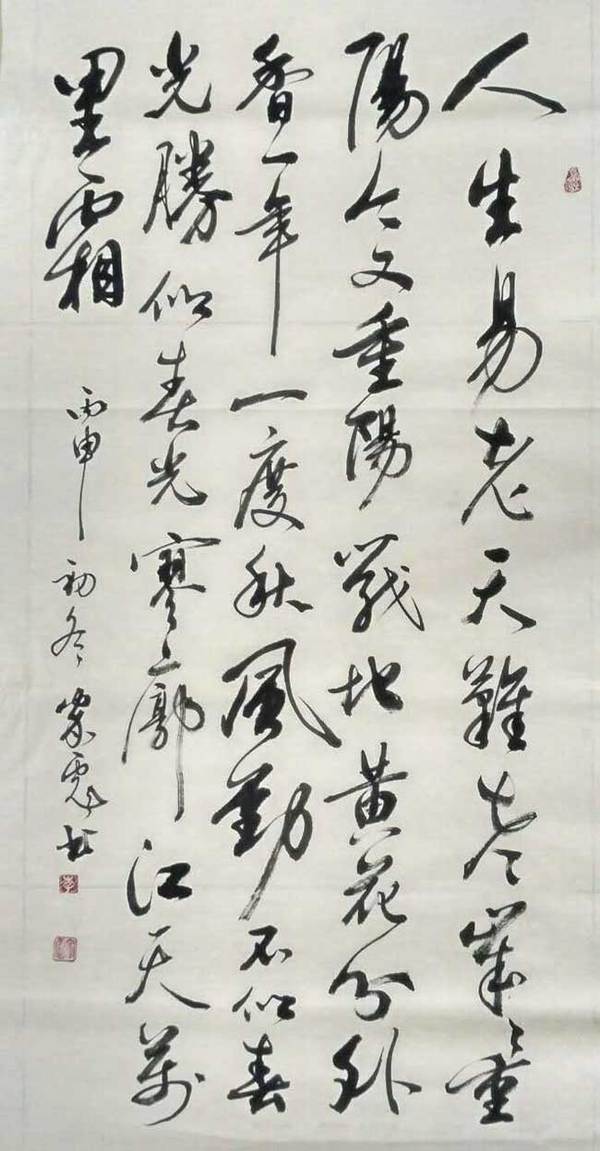 人生易老天難老歲歲重
陽今又重陽戰地黃花分外
香一年一度秋風勁不似春
光勝似春光寥廓江天萬
里霜
丙申初冬 書